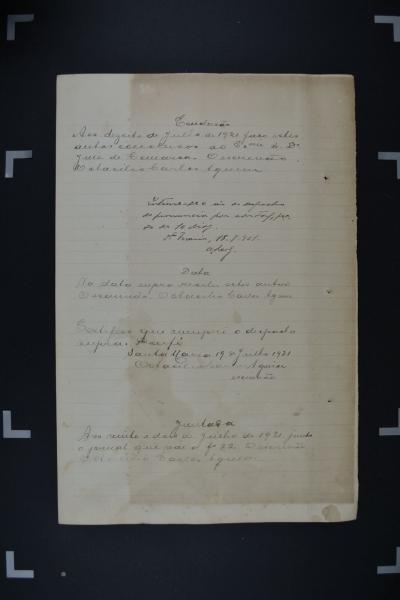 Conclusão
Aos dezoito de Julho de 1921 faço estes
autos conclusos ao Exmo Sr. Dr.
Juiz de Comarca. O escrivão
Octacilio Carlos Aguiar
Intime-se o réo do despacho
de pronuncia por
de 10 dias.
Sta Maria, 18.7.921.
Data
Na data supra recebi estes autos
O escrivão Octacilio Carlos Aguiar
Certifico que cumpri o despacho
supra. Dou fé
Santa Maria 19 de Julho 1921
Aguiar
escrivão
Juntada
Aos vinte e dois de Julho de 1921, junto
o jornal que a f. 22. O escrivão
Octacilio Carlos Aguiar